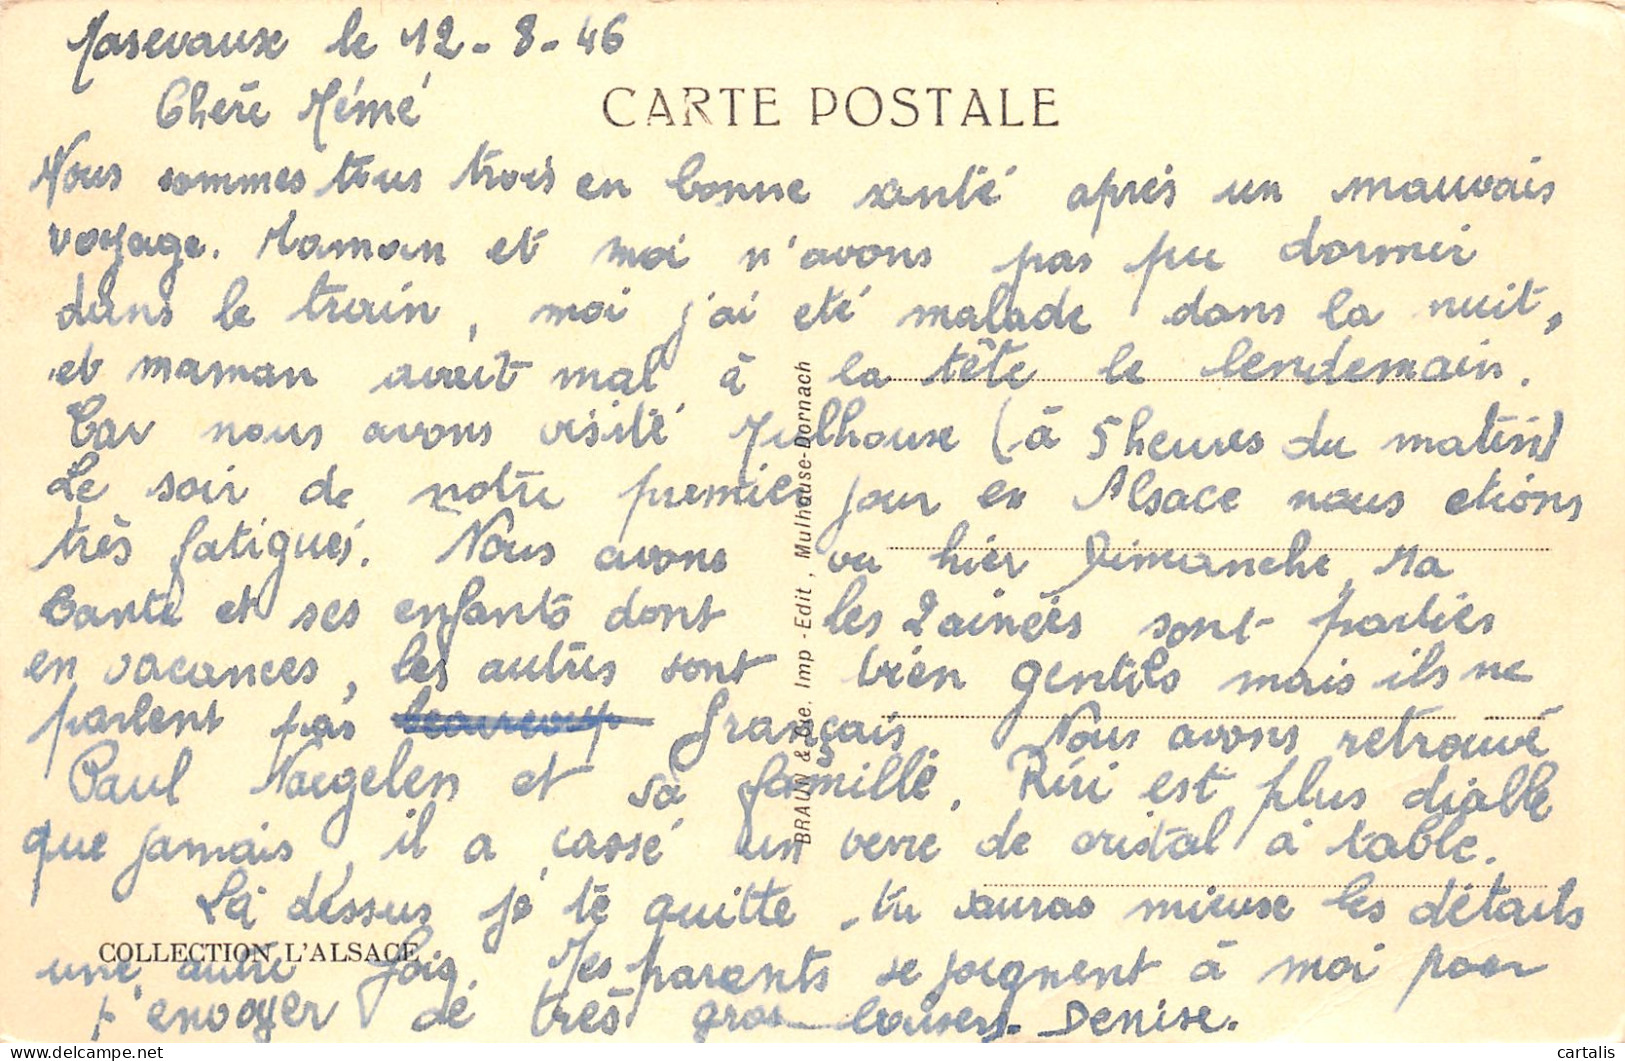 Masevaux le 12-8-46
Chère Mémé
CARTE POSTALE
Nous sommes tous trois en bonne santé après un mauvais
voyage. Maman et moi n'avons pas pu dormir
dans le train, moi j'ai eté malade dans la nuit,
et maman avait mal à la tête le lendemain.
Car nous avons visité Mulhouse (à 5 heures du matin)
Le soir de notre premier jour en Alsace nous etions
très fatigués. Nous avons vu hier Dimanche, Ma
tante et ses enfants dont les 2 ainées sont parties
en vacances, les autres sont bien gentils mais ils ne
parlent pas beaucoup français. Nous avons retrouvé
Paul Naegelen et sa famille. Riri est plus diable
que jamais, il a cassé un verre de cristal à table.
Là dessus je te quitte. tu sauras mieux les détails
une autre fois. Mes parents se joignent à moi pour
t'envoyer de très gros baisers. Denise.
COLLECTION L'ALSACE
BRAUN & Cie. Imp - Edit, Mulhouse-Dornach
cartalis